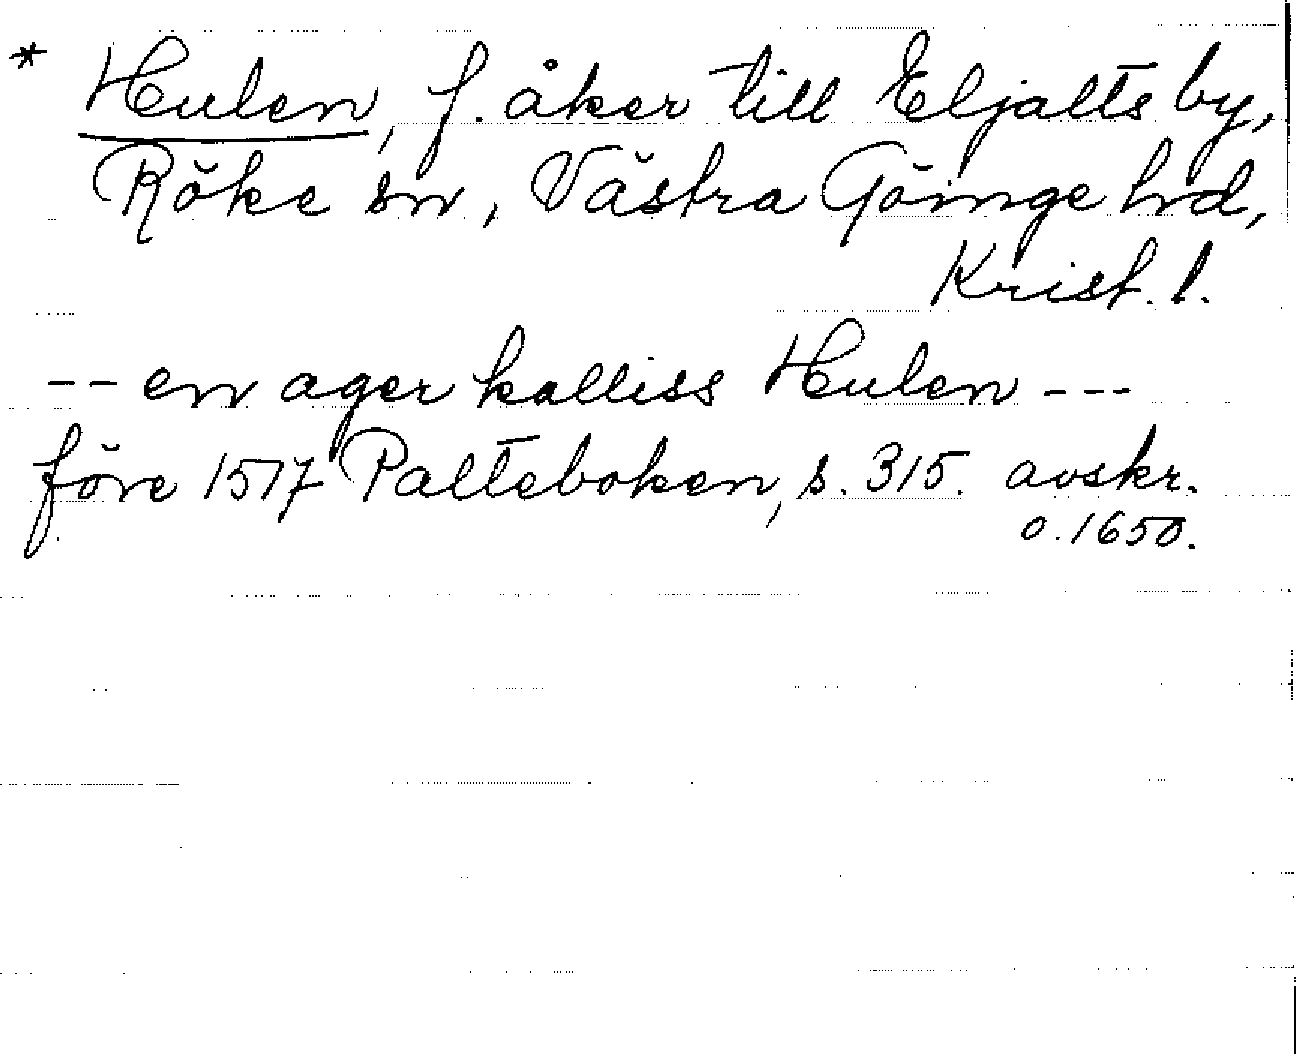 * Hulen, f. åker till Eljalts by,
Röke sn, Västra Göinge hd,
Krist. l.
-- en ager kalliss Hulen ---
före 1517 Palteboken, s. 315. avskr.
o. 1650.